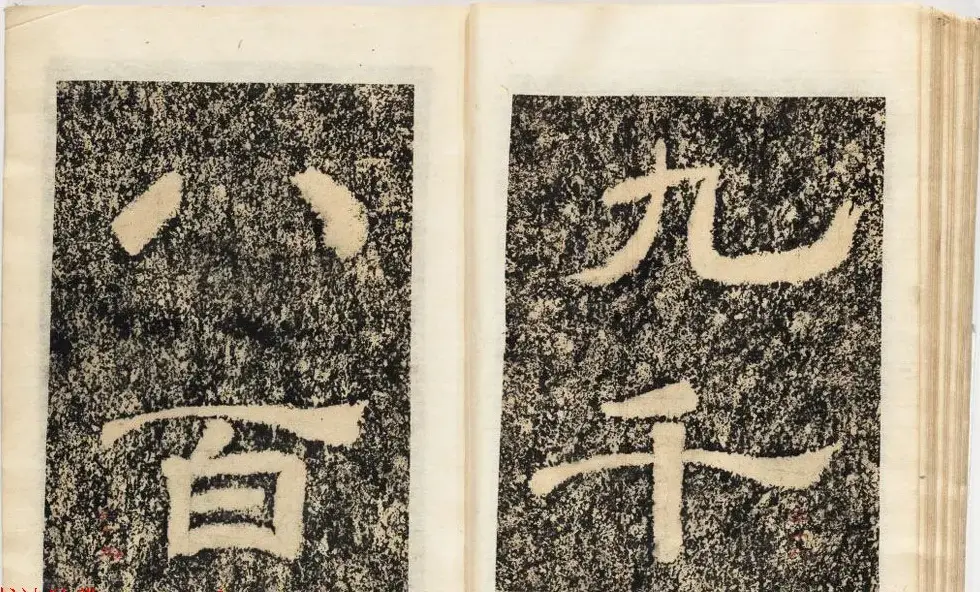 九千
八百